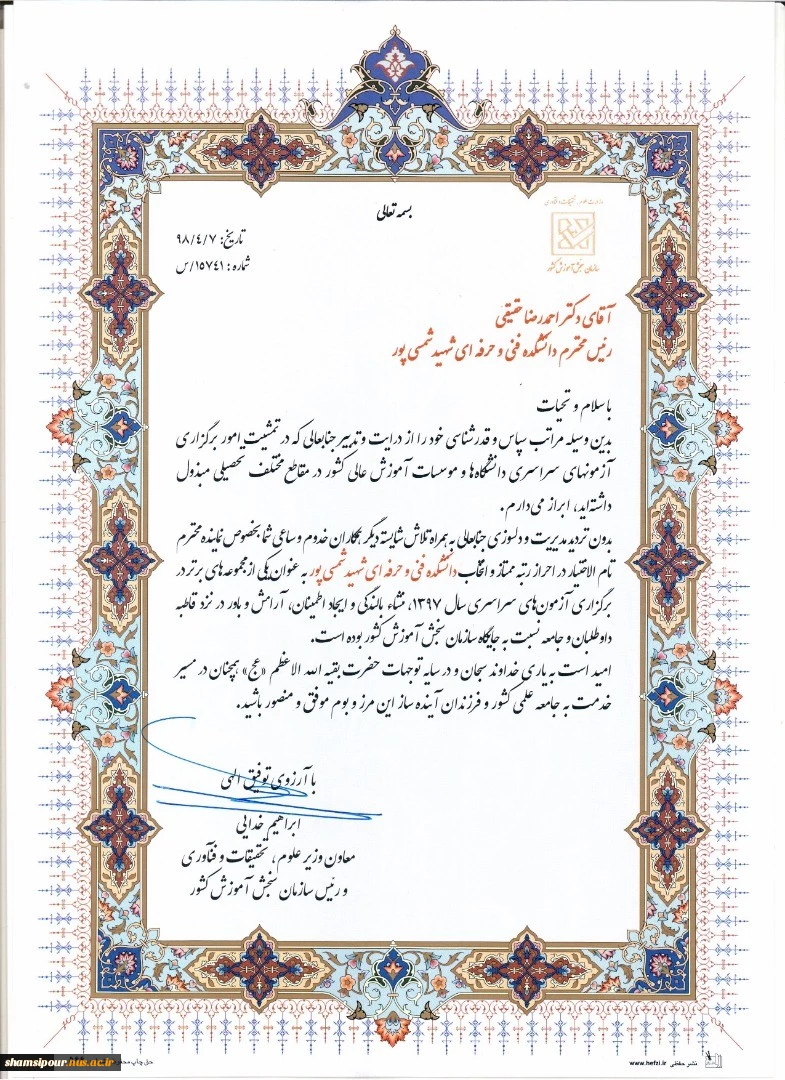 بسمه تعالی
وزارت علوم، تحقیقات و فناوری
سازمان سنجش آموزش کشور
تاریخ: ۹۸/٤/۷
شماره: ۱۵۷٤۱/س
آقای دکتر احمدرضا حقیقی
رئیس محترم دانشکده فنی و حرفه ای شهید شمسی پور
با سلام و تحیات
بدین وسیله مراتب سپاس و قدرشناسی خود را از درایت و تدبیر جنابعالی که در تمشیت امور برگزاری
آزمونهای سراسری دانشگاه‌ها و موسسات آموزش عالی کشور در مقاطع مختلف تحصیلی مبذول
داشته‌اید، ابراز می‌دارم.
بدون تردید مدیریت و دلسوزی جنابعالی به همراه تلاش شایسته دیگر همکاران خدوم و ساعی شما بخصوص نماینده محترم
تام الاختیار در احراز رتبه ممتاز و انتخاب دانشکده فنی و حرفه ای شهید شمسی پور به عنوان یکی از مجموعه های برتر در
برگزاری آزمون‌های سراسری سال ۱۳۹۷، منشاء بالندگی و ایجاد اطمینان، آرامش و باور در نزد قاطبه
داوطلبان و جامعه نسبت به جایگاه سازمان سنجش آموزش کشور بوده است.
امید است به یاری خداوند سبحان و در سایه توجهات حضرت بقیه الله الاعظم «عج» همچنان در مسیر
خدمت به جامعه علمی کشور و فرزندان آینده ساز این مرز و بوم موفق و منصور باشید.
با آرزوی توفیق الهی
ابراهیم خدایی
معاون وزیر علوم، تحقیقات و فنآوری
و رئیس سازمان سنجش آموزش کشور
نشر حفظی www.hefzi.ir
حق چاپ
shamsipour.nus.ac.ir